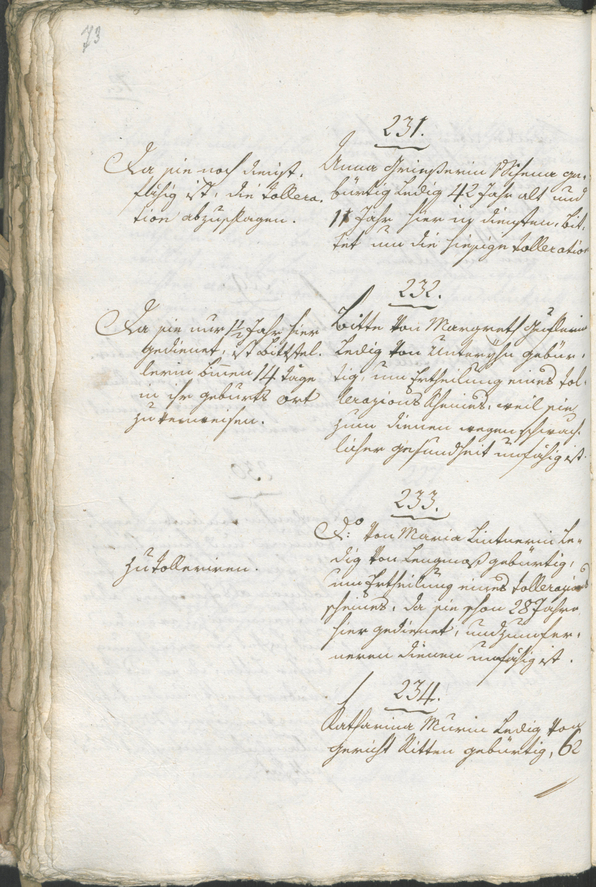 73
231.
Da sie noch dienst-
fähig ist, die Tollera-
tion abzuschlagen.
Anna Grießerin Schena ge-
bürtig Ledig 42 Jahr alt und
11 Jahr hier in diensten, bit-
tet um die hiesige Tolleration
232.
Da sie nur 1/2 Jahr hier
gedienet, ist Bittstel-
lerin binnen 14 Täge
in ihr geburts Ort
zu verweisen.
Bitte von Margreth
Ledig von gebür-
tig, um Ertheilung eines Tol-
lerazions Scheines, weil sie
zum dienen wegen schwäch-
licher gesundheit unfähig ist.
233.
zu Tolleriren.
Do: von Maria Lintnerin Le-
dig von Lengmoß gebürtig,
um Ertheilung eines Tollerazions
scheines, da sie schon 28 Jahre
hier gedienet, und zum fer-
neren dienen unfähig ist.
234.
Katharina Murin Ledig von
Gericht Ritten gebürtig, 62